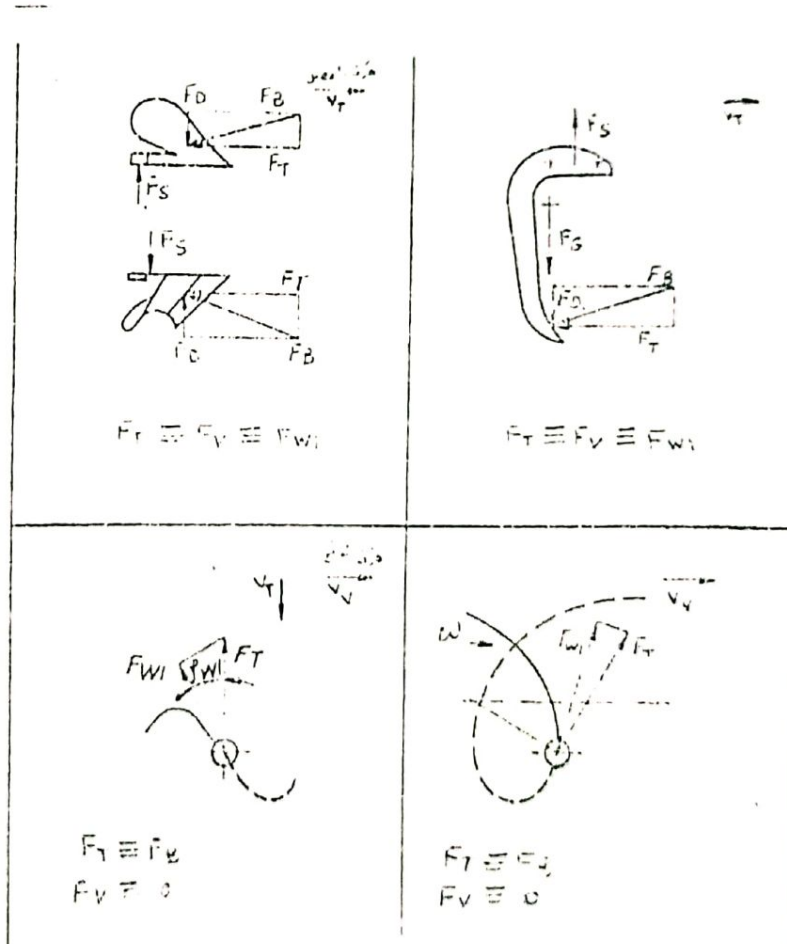 F_D F_B
V_T
F_T
F_S
F_S
F_T
F_D F_B
F_T ≡ F_V ≡ F_W1
F_S
V_T
F_G
F_B
F_D
F_T
F_T ≡ F_V ≡ F_W1
V_T
V_V
F_W1 F_T
F_T ≡ F_B
F_V ≡ 0
V_V
ω
F_W1 F_T
F_T ≡ F_B
F_V ≡ 0